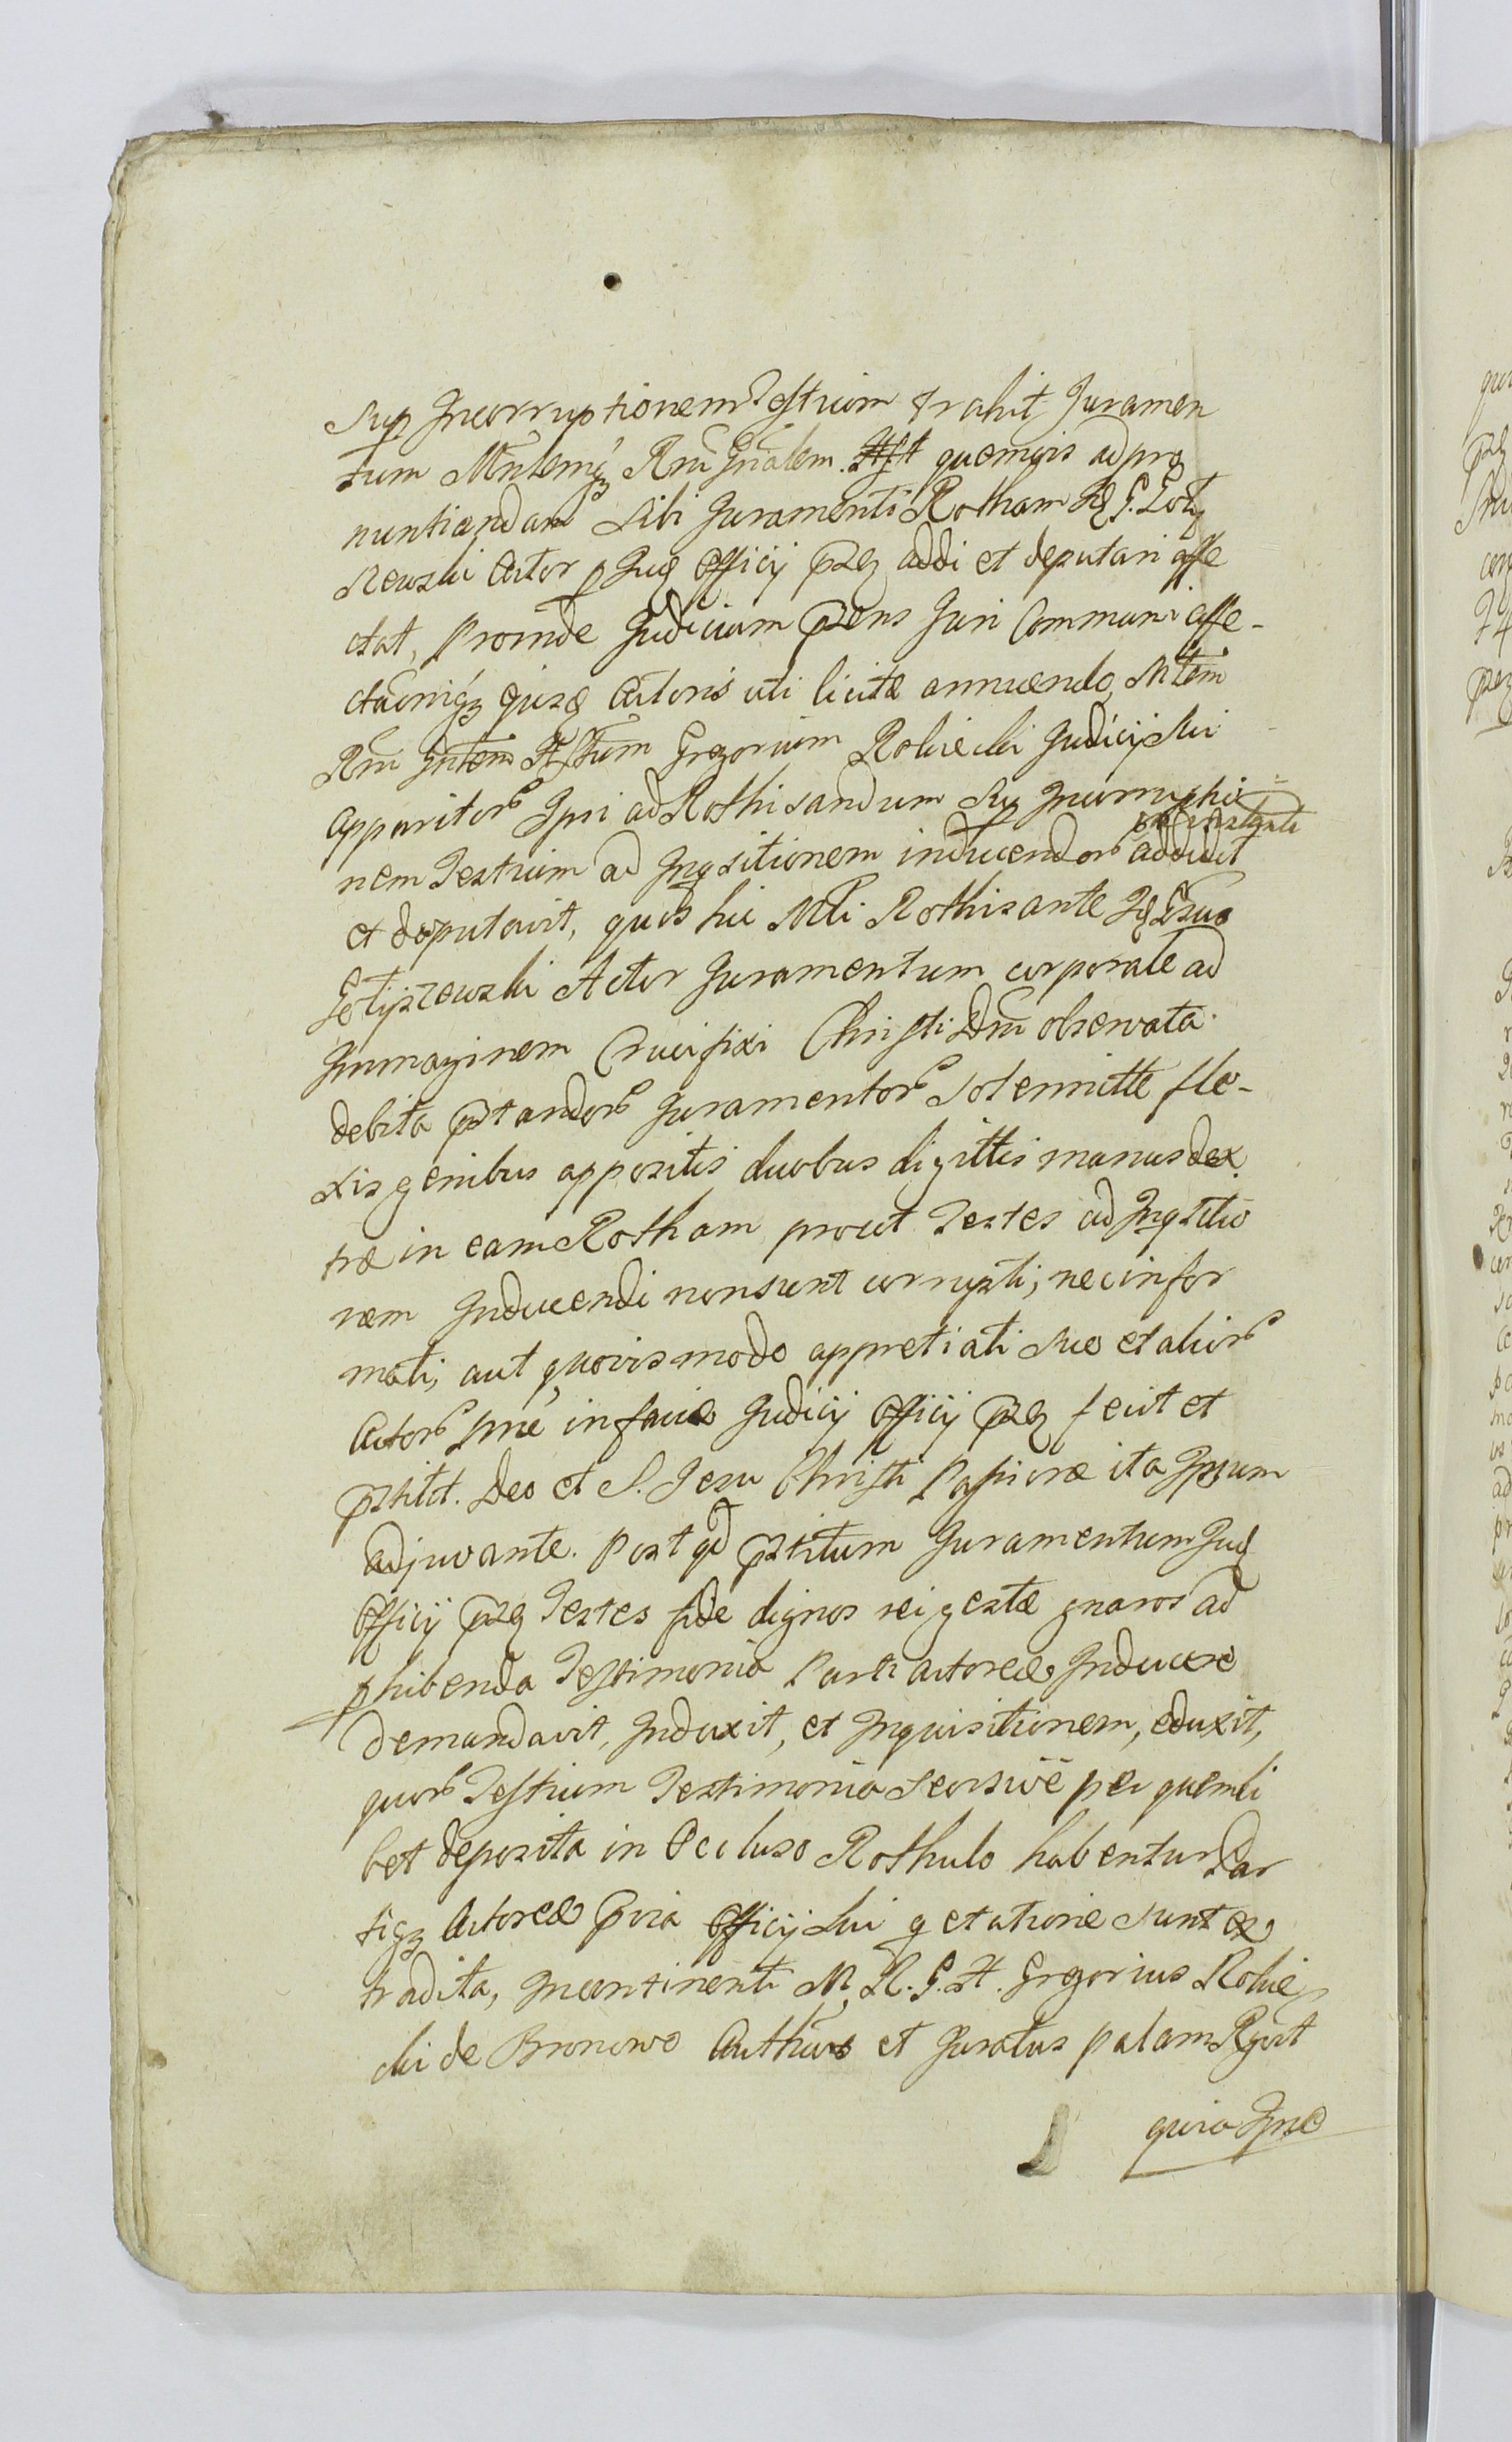 Sup Incorruptionem Testium trahit Juramen
tum Mntemq Rm Gnalem quemvis ad pro
nuntiandam sibi Juramenti Rotham G. Goty
szewski Actor p Jud Officij psz addi et deputari affe
ctat, Proinde Judicium psens Juri Communi affe-
ctaoniqz ejusq Actoris uti licitæ annuendo, Mtem
Rm Gntem Gregorium Rokicki Judicij sui
Apparitor Ipsi ad Rothisandum Sup Incorruptio
nem Testium ad Inqsitionem inducendor addidit
et deputavit, quo hic Mli Rothisante
Gotyszewski Actor Juramentum corporale ad
Immaginem Crucifixi Christi Dni observata
debita pstandor Juramentor solennitte fle-
xis genibus appositis duobus digittis manus dex
træ in eam Rotham prout Testes ad Inqsitio
nem Inducendi non sunt corrupti, nec infor
mati, aut quovis modo appretiati suo et alior
Actor nne in facie Judicij Officij psz fecit et
pstitit. Deo et S. Jesu Christi Passione ita Ipsum
adjuvante. Post qd pstitum Juramentum Jud
Officij psz Testes fide dignos rei gestæ gnaros ad
phibenda Testimonia Parti actoreæ Inducere
demandavit, Induxit, et Inquisitionem, eduxit,
quor Testium Testimonia seorsive per quemli
bet deposita in Occluso Rothulo habentur Par
tiqz Actoreæ pvia Officij sui sunt ex
tradita, Incontinenti M. R. G. Gregorius Rokic
ki de Bronowo Authus et Juratus palam Rgvit
quia Ipse